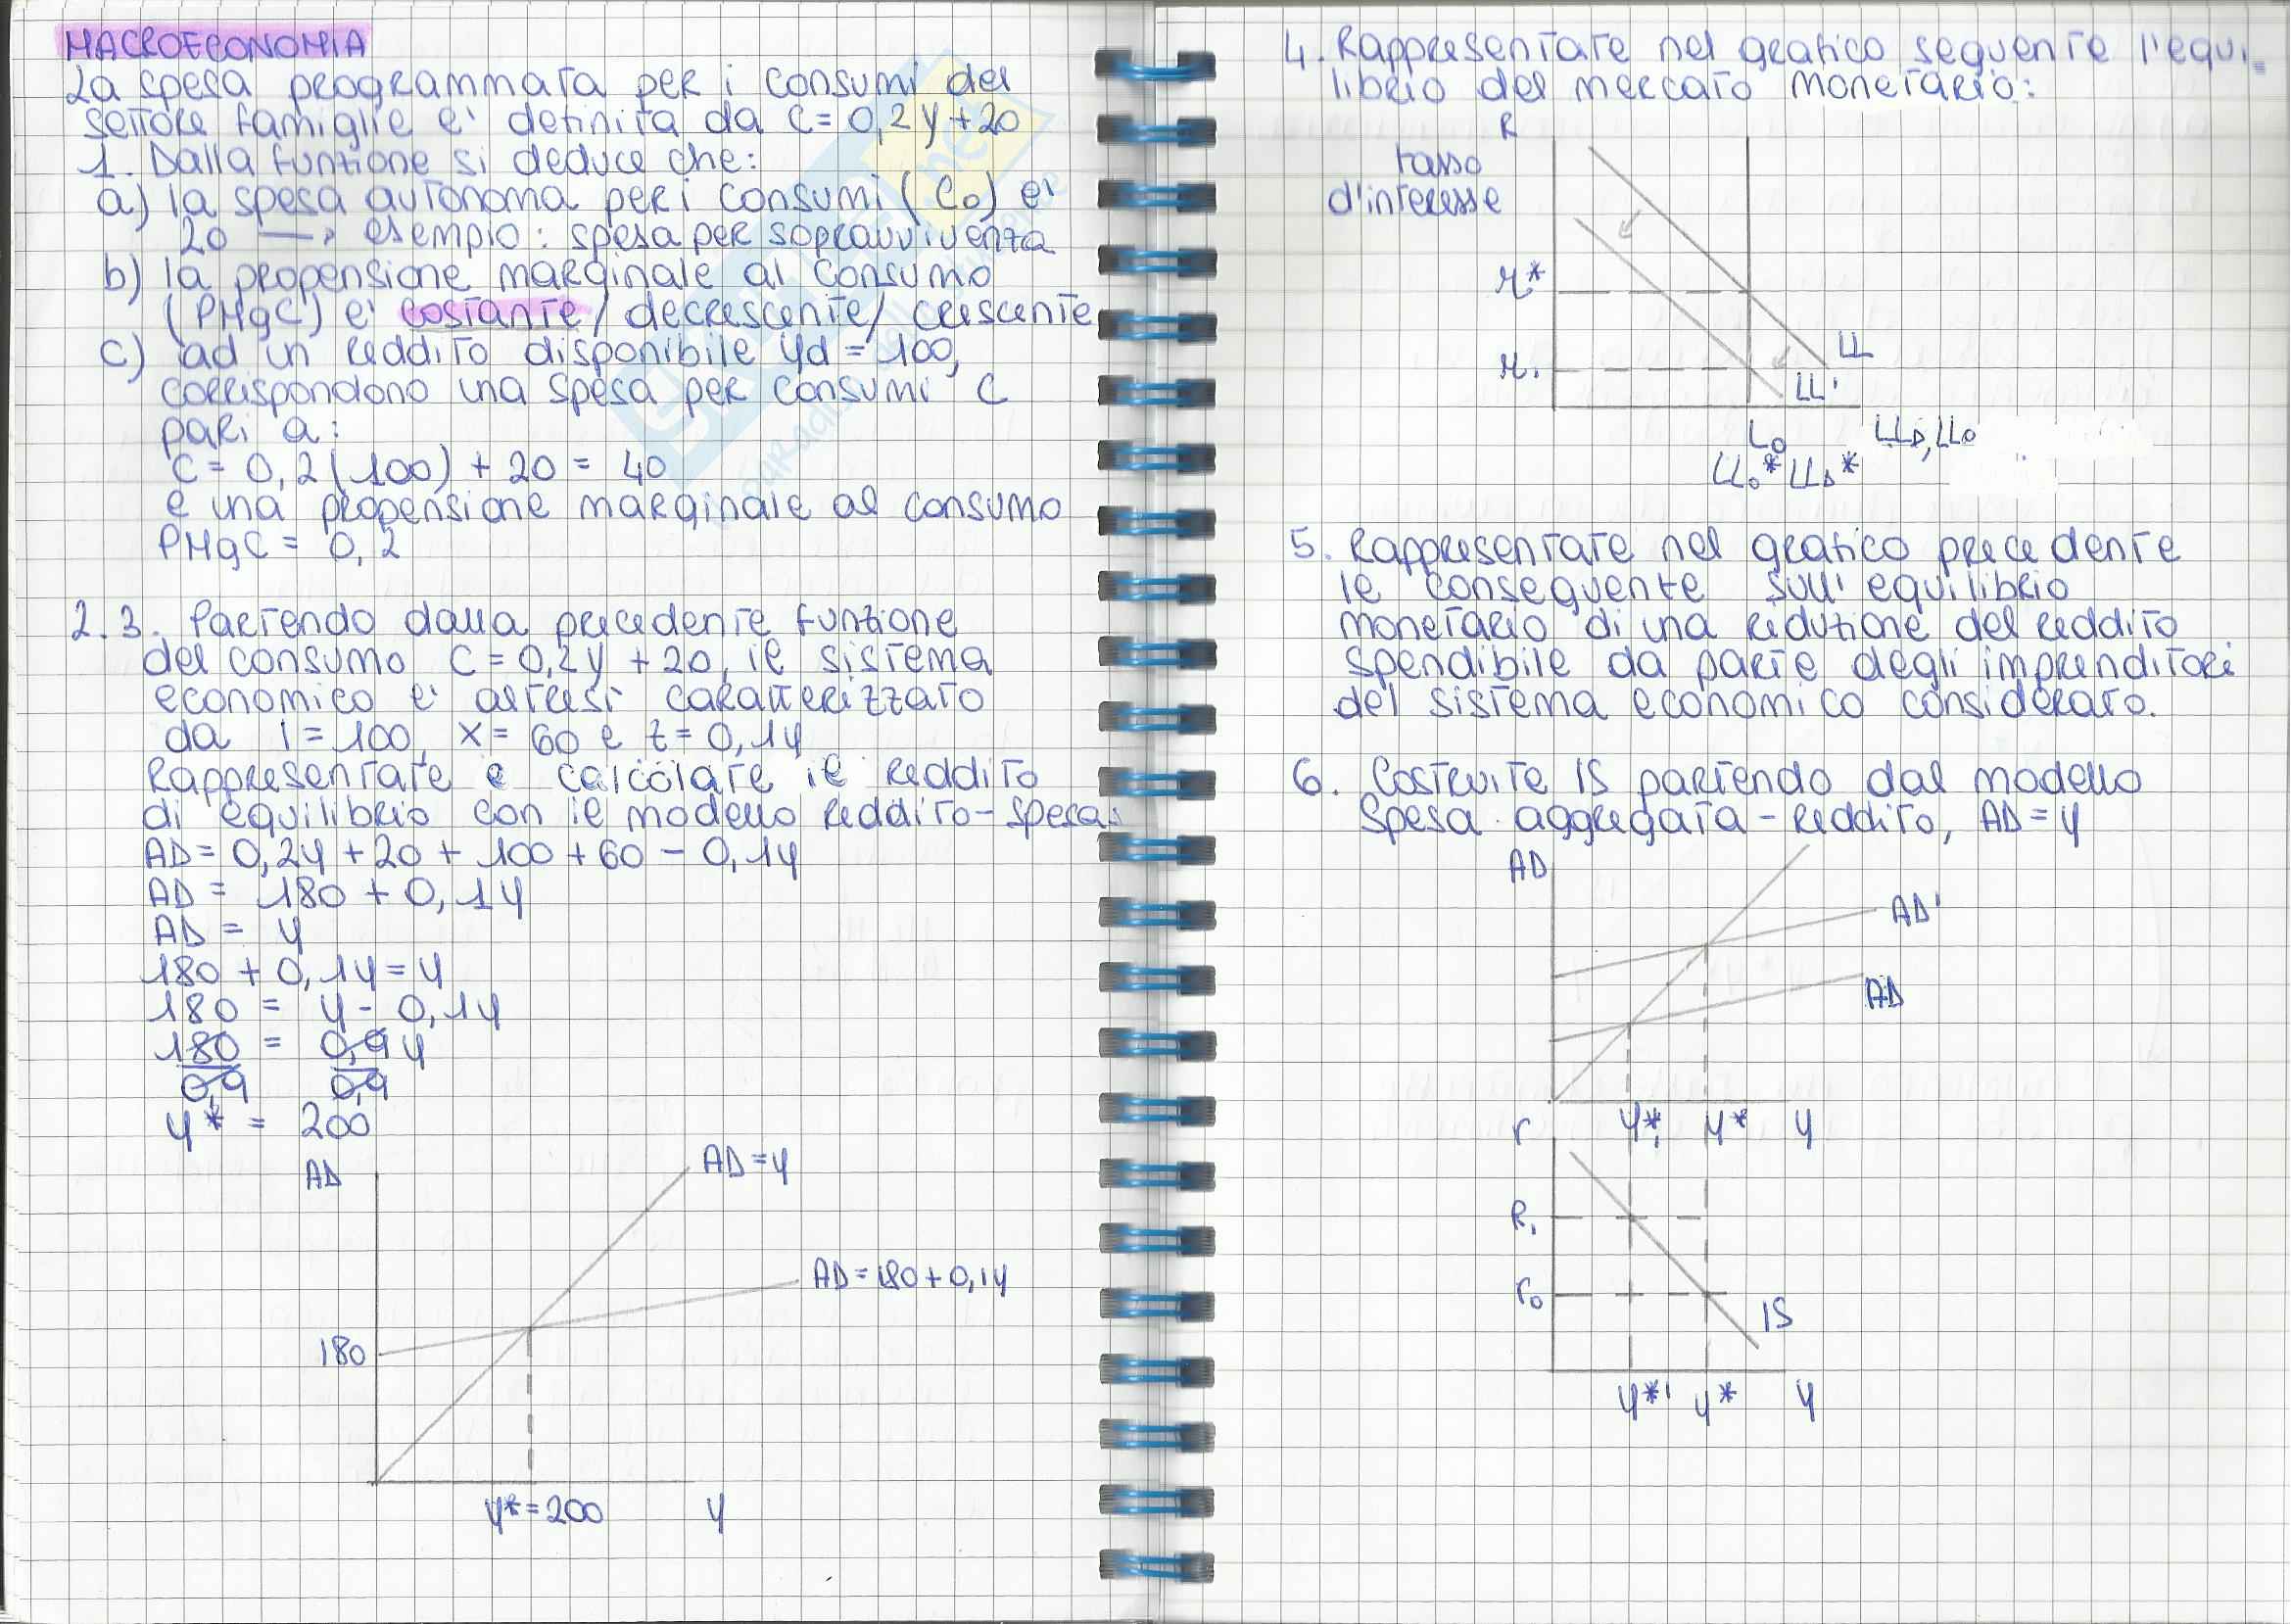 MACROECONOMIA
La spesa programmata per i consumi del
settore famiglie e' definita da C = 0,2y + 20
1. Dalla funzione si deduce che:
a) la spesa autonoma per i consumi (C₀) e'
20 → esempio: spesa per sopravvivenza
b) la propensione marginale al consumo
(PMgC) e' costante / decrescente / crescente
c) ad un reddito disponibile yd = 100,
corrispondono una spesa per consumi C
pari a:
C = 0,2 (100) + 20 = 40
e una propensione marginale al consumo
PMgC = 0,2
2.3. Partendo dalla precedente funzione
del consumo C = 0,2y + 20, il sistema
economico e' altresì caratterizzato
da I = 100, X = 60 e Z = 0,1y
Rappresentate e calcolate il reddito
di equilibrio con il modello reddito-spesa:
AD = 0,2y + 20 + 100 + 60 - 0,1y
AD = 180 + 0,1y
AD = y
180 + 0,1y = y
180 = y - 0,1y
180 = 0,9y
0,9 0,9
y* = 200
AD
AD = y
AD = 180 + 0,1y
180
y* = 200
y
4. Rappresentate nel grafico seguente l'equi
librio del mercato monetario:
R
tasso
d'interesse
r*
r₁
LL
LL'
L₀
LL₀* LLD*
LLD, LL₀
5. Rappresentate nel grafico precedente
le conseguente sull' equilibrio
monetario di una riduzione del reddito
spendibile da parte degli imprenditori
del sistema economico considerato.
6. Costruite IS partendo dal modello
spesa aggregata - reddito, AD = y
AD
AD'
AD
y*₁ y* y
r
R₁
r₀
IS
y*' y* y